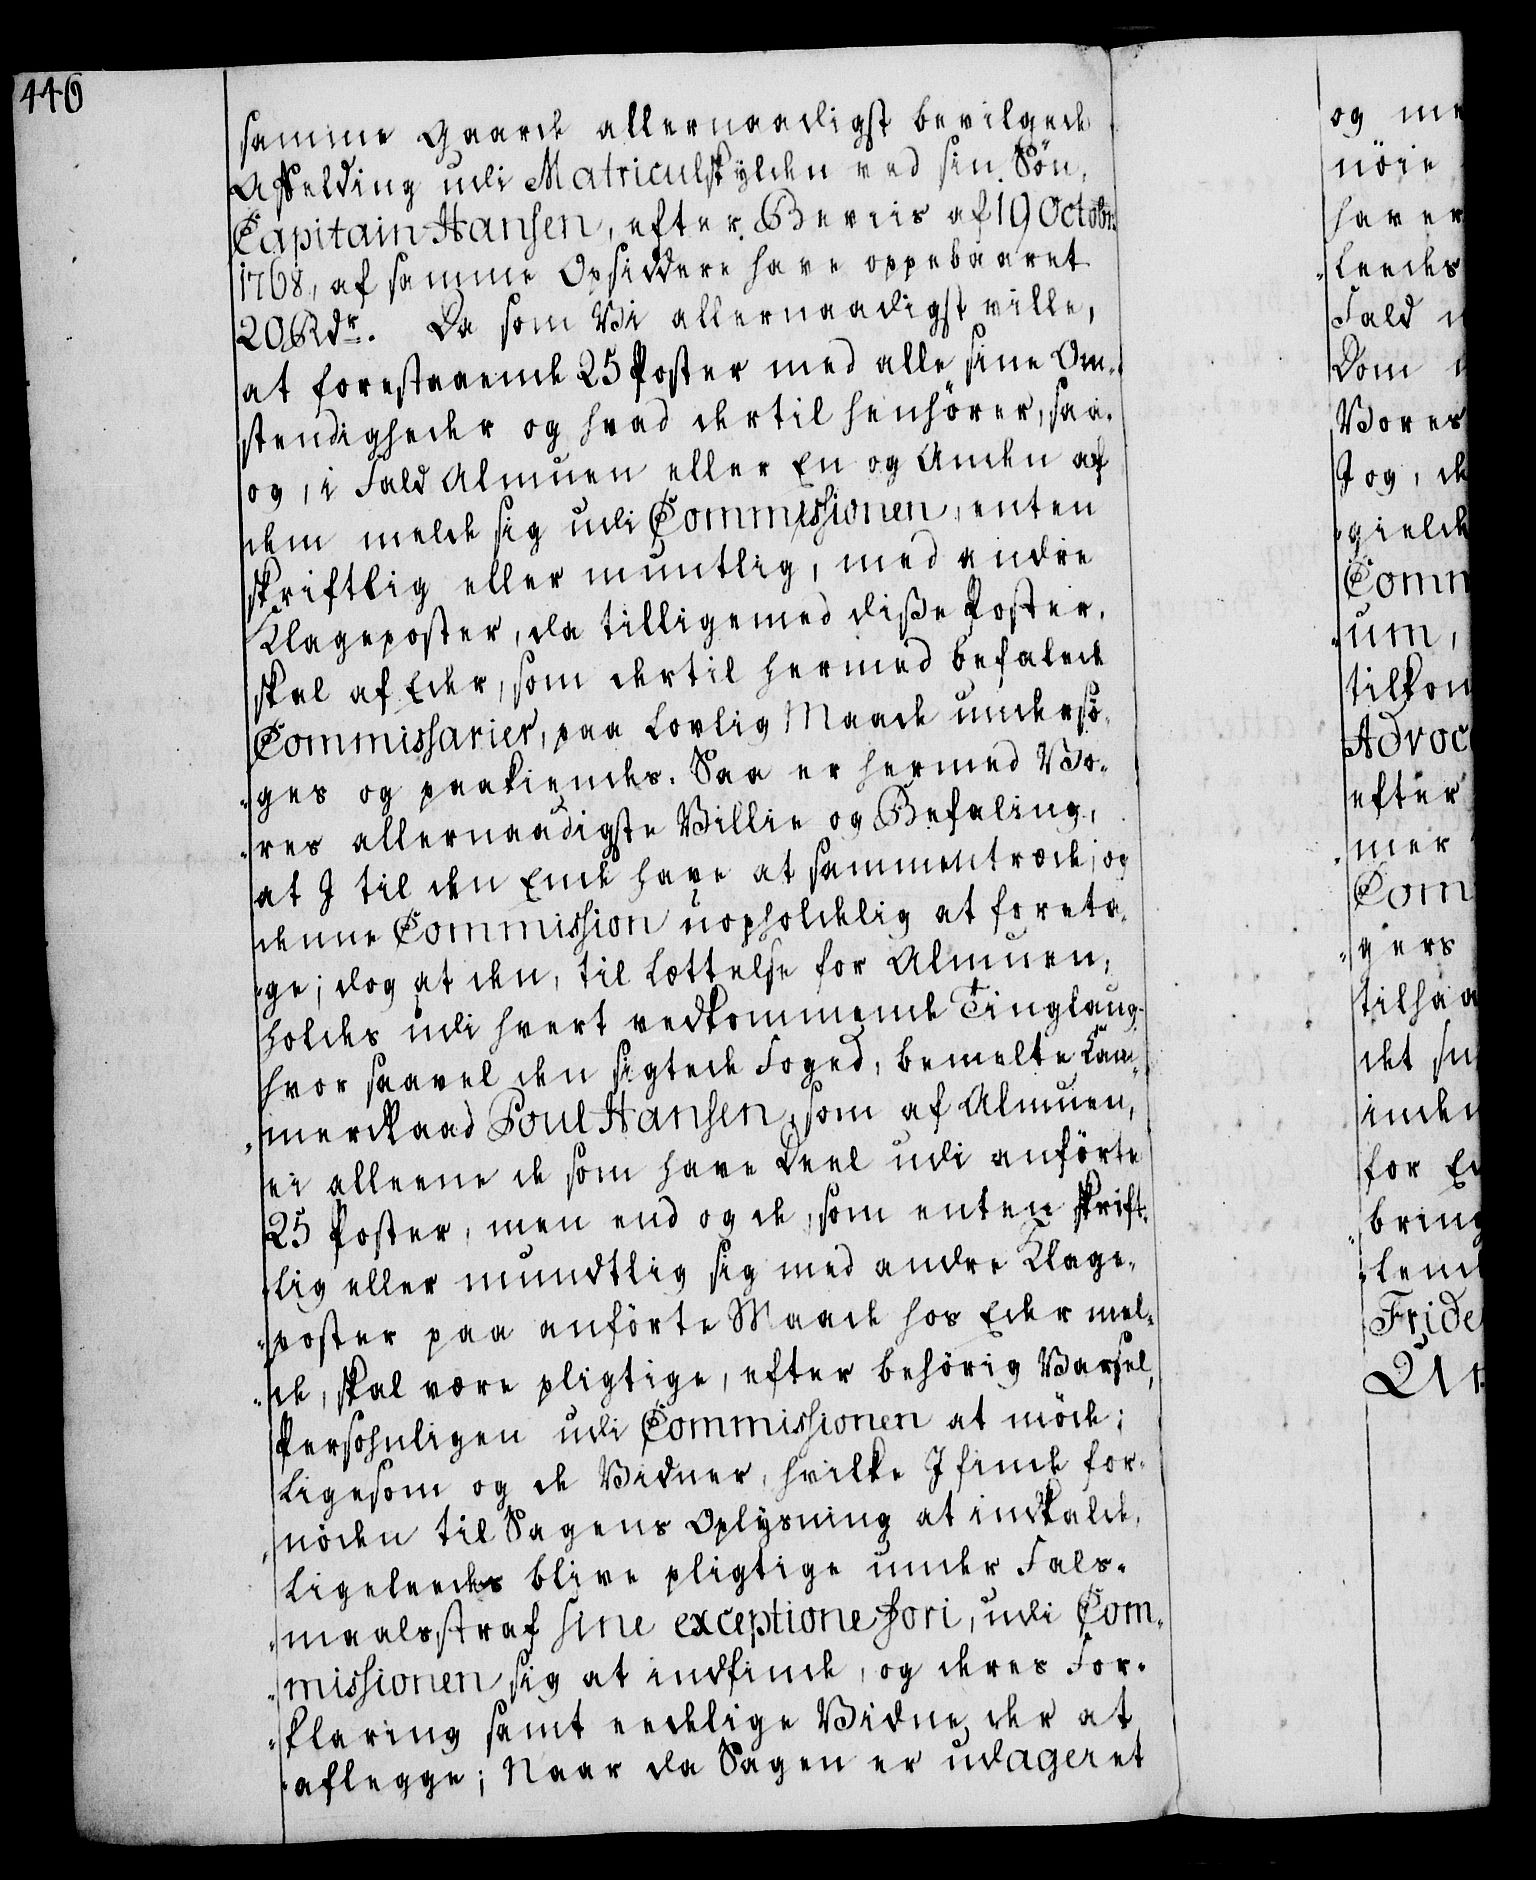 446
samme Gaarde allernaadigst bevilgede
Affelding udi Matriculskylden ved sin Sön,
Capitain Hansen, efter Beviis af 19 Octobr:
1768, af samme Opsiddere have oppebaaret
20 Rdr. Da som Vi allernaadigst ville,
at forestaaende 25 Poster med alle sine Om-
stendigheder og hvad dertil henhörer, saa-
og, i Fald Almuen eller En og Anden af
dem melde sig udi Commissionen, enten
skriftlig eller muntlig, med andre
Klageposter, da tilligemed diße Poster,
skal af Eder, som dertil hermed befalede
Commissarier, paa lovlig Maade undersö-
ges og paakiendes. Saa er hermed Vo-
res allernaadigste Villie og Befaling,
at I til den Ende have at sammentræde, og
denne Commission uopholdelig at foreta-
ge; dog at den, til Lættelse for Almuen,
holdes udi hvert vedkommende Tinglaug
hvor saavel den sigtede Foged, bemelte Cam-
merraad Poul Hansen, som af Almuen,
ei alleene de som have Deel udi anförte
25 Poster, men end og de, som enten skrift-
lig eller mundtlig sig med andre Klage-
poster paa anförte Maade hos Eder mel-
de, skal være pligtige, efter behörig Varsel,
Persohnligen udi Commissionen at möde;
Ligesom og de Vidner, hvilke I finde for-
nöden til Sagens Oplysning at indkalde,
Ligeleedes blive pligtige under Fals-
maalsstraf sine exceptione fori, udi Com-
missionen sig at indfinde, og deres For-
klaring samt eedelige Vidne der at
aflegge; Naar da Sagen er udageret
og me
nöie
haver
leedes
Fald
Dom
Vores
I og, de
gielde
Comm
um,
tilkom
Advoc
efter
mer
Com
gers
tilhaa
det
inden
for
bring
lend
Frider